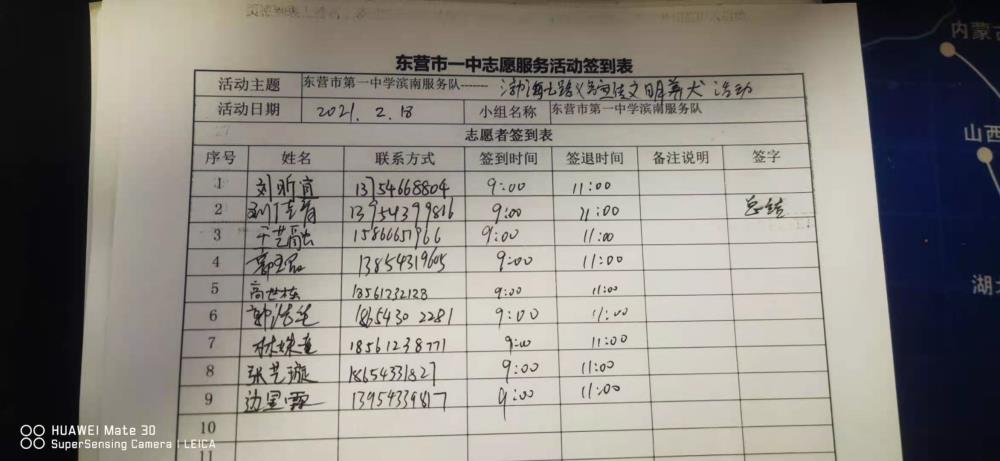 东营市一中志愿服务活动签到表
活动主题 东营市第一中学滨南服务队------- 渤海七路 文明养犬 活动
活动日期 2021. 2. 18 小组名称 东营市第一中学滨南服务队
志愿者签到表
序号 姓名 联系方式 签到时间 签退时间 备注说明 签字
1 刘昕 13754668804 9:00 11:00
2 刘佳 13954399816 9:00 11:00 总结
3 于艺 15866651966 9:00 11:00
4 13854319605 9:00 11:00
5 高世栋 18561232128 9:00 11:00
6 郭浩 18654302281 9:00 11:00
7 林姝 18561238771 9:00 11:00
8 张艺璇 18654331827 9:00 11:00
9 边 霖 13954339817 9:00 11:00
10
11
内蒙古
山西
湖北
HUAWEI Mate 30
SuperSensing Camera | LEICA